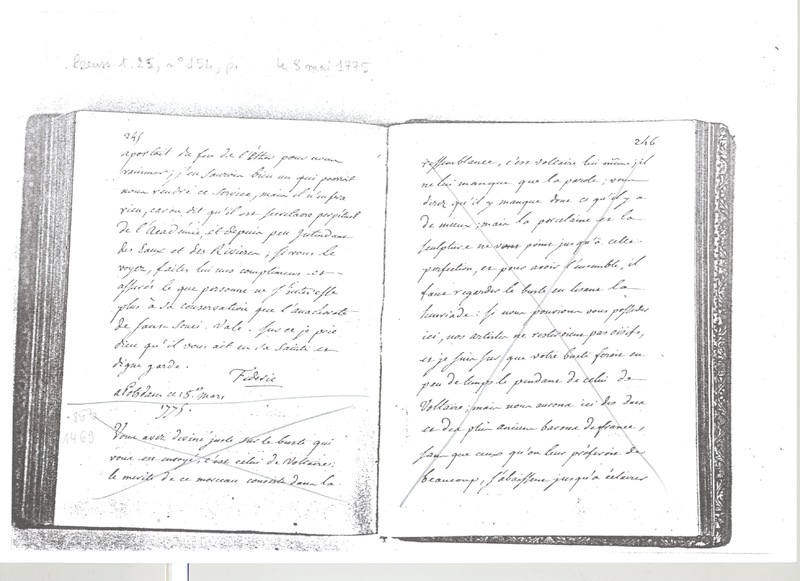 Preuss t. 25, n° 154, p. le 8 mai 1775
245
apostat du feu de l'Ether pour nous
ranimer; j'en saurois bien un qui pourroit
nous rendre ce service, mais il n'en fera
rien, car on dit qu'il est secretaire perpétuel
de l'Academie, et depuis peu Intendant
des Eaux et des Rivieres; si vous le
voyez, faites lui mes complimens et
assurés le que personne ne s'interesse
plus à sa conservation que l'anachorete
de Sans Souci. Vale. Sur ce je prie
dieu qu'il vous ait en sa Sainte et
digne garde.
Féderic
a Potsdam ce 15. mars
1775.
1469
Vous avez deviné juste sur le buste qui
vous est envoyé, c'est celui de Voltaire;
le merite de ce morceau consiste dans la
246
ressemblance, c'est Voltaire lui même; il
ne lui manque que la parole; vous
direz qu'il y manque donc ce qu'il y a
de mieux; mais la porcelaine et la
sculpture ne vont point jusqu'à cette
perfection, et pour avoir l'ensemble, il
faut regarder le buste en lisant la
henriade: Si nous pouvions vous posseder
ici, nos artistes ne resteroient pas oisifs,
et je suis sur que votre buste feroit en
peu de temps le pendant de celui de
Voltaire; mais nous aurons ici des ducs
et des plus anciens barons de france,
sans que ceux qu'on leur préfereroit de
beaucoup, s'abaissent jusqu'à éclairer